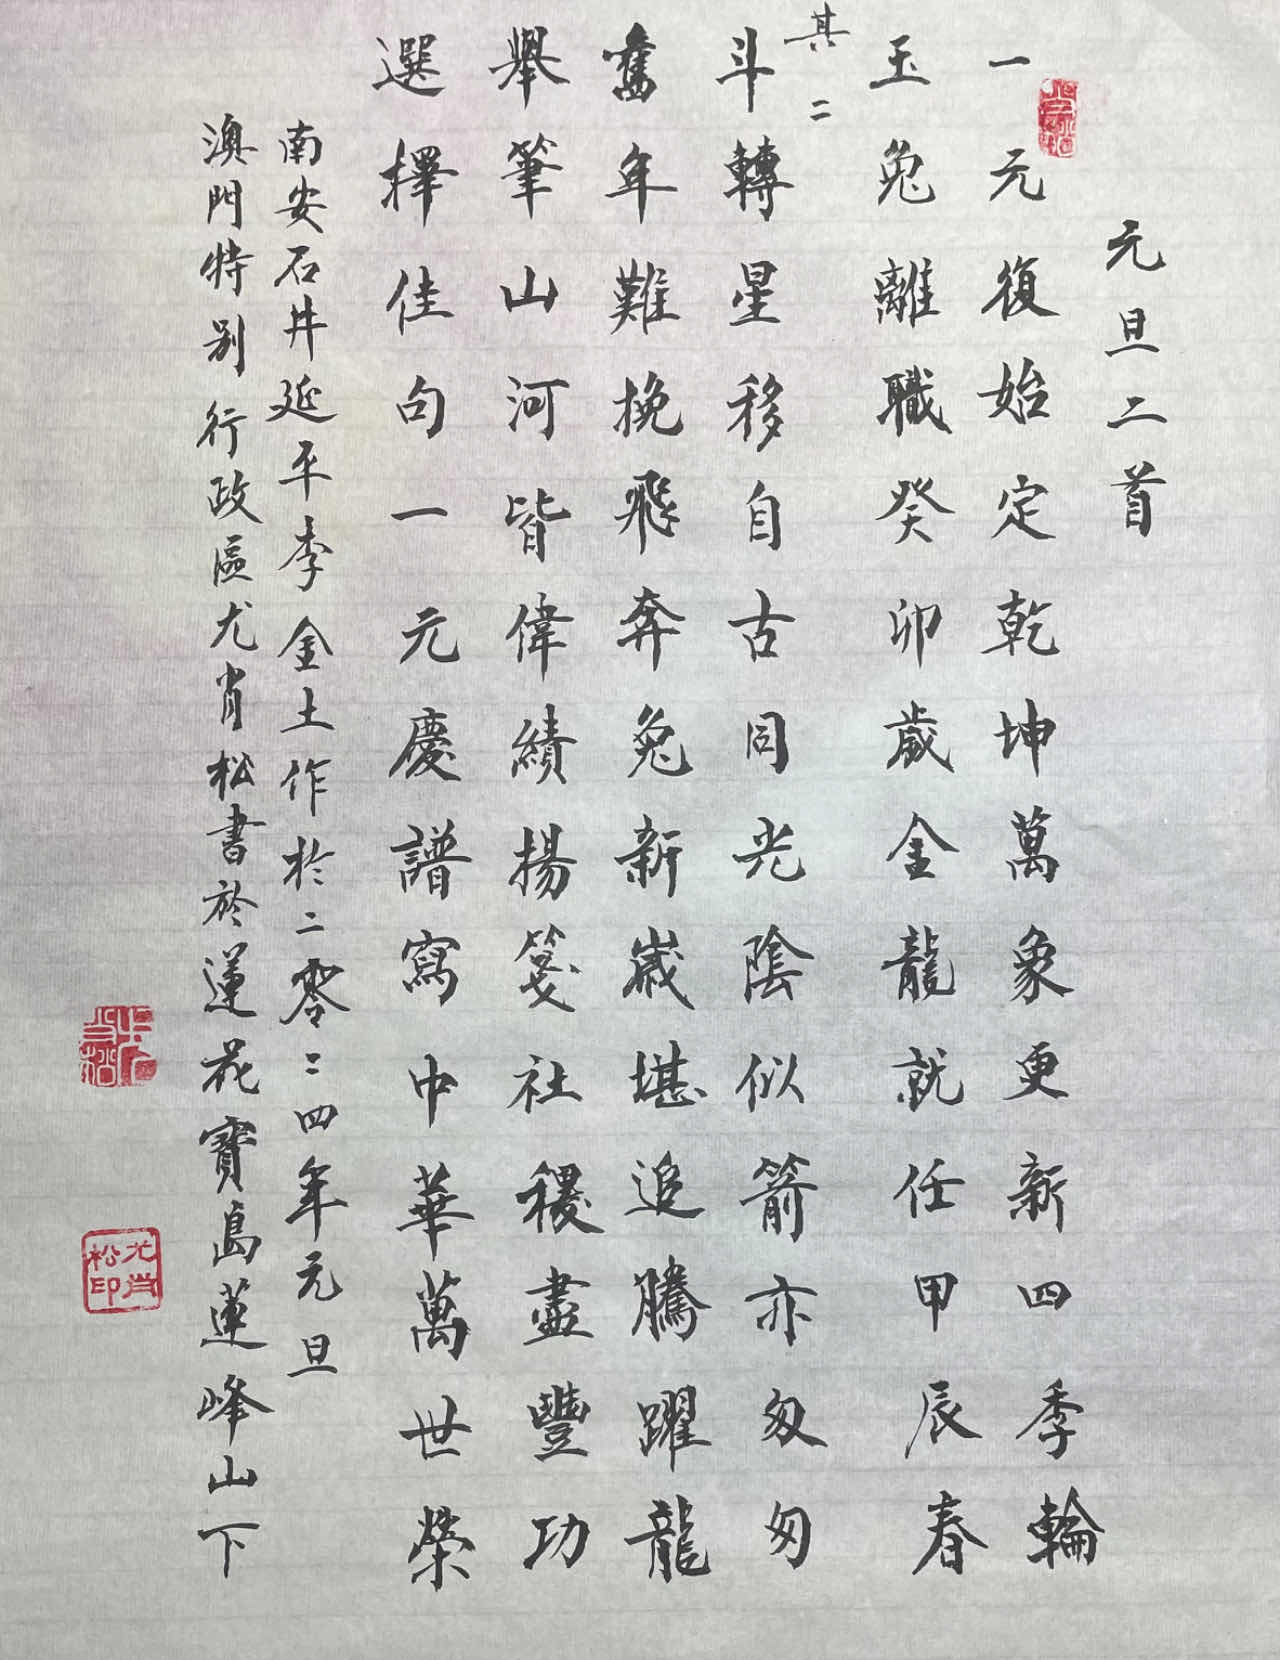 元旦二首
一元復始定乾坤萬象更新四季輪
玉兔離職癸卯歲金龍就任甲辰春
其二
斗轉星移自古同光陰似箭亦匆匆
奮年難挽飛奔兔新歲堪追騰躍龍
舉筆山河皆偉績揚箋社稷盡豐功
選擇佳句一元慶譜寫中華萬世榮
南安石井延平李金土作於二零二四年元旦
澳門特別行政區尤肖松書於蓮花寶島蓮峰山下
尤肖松印